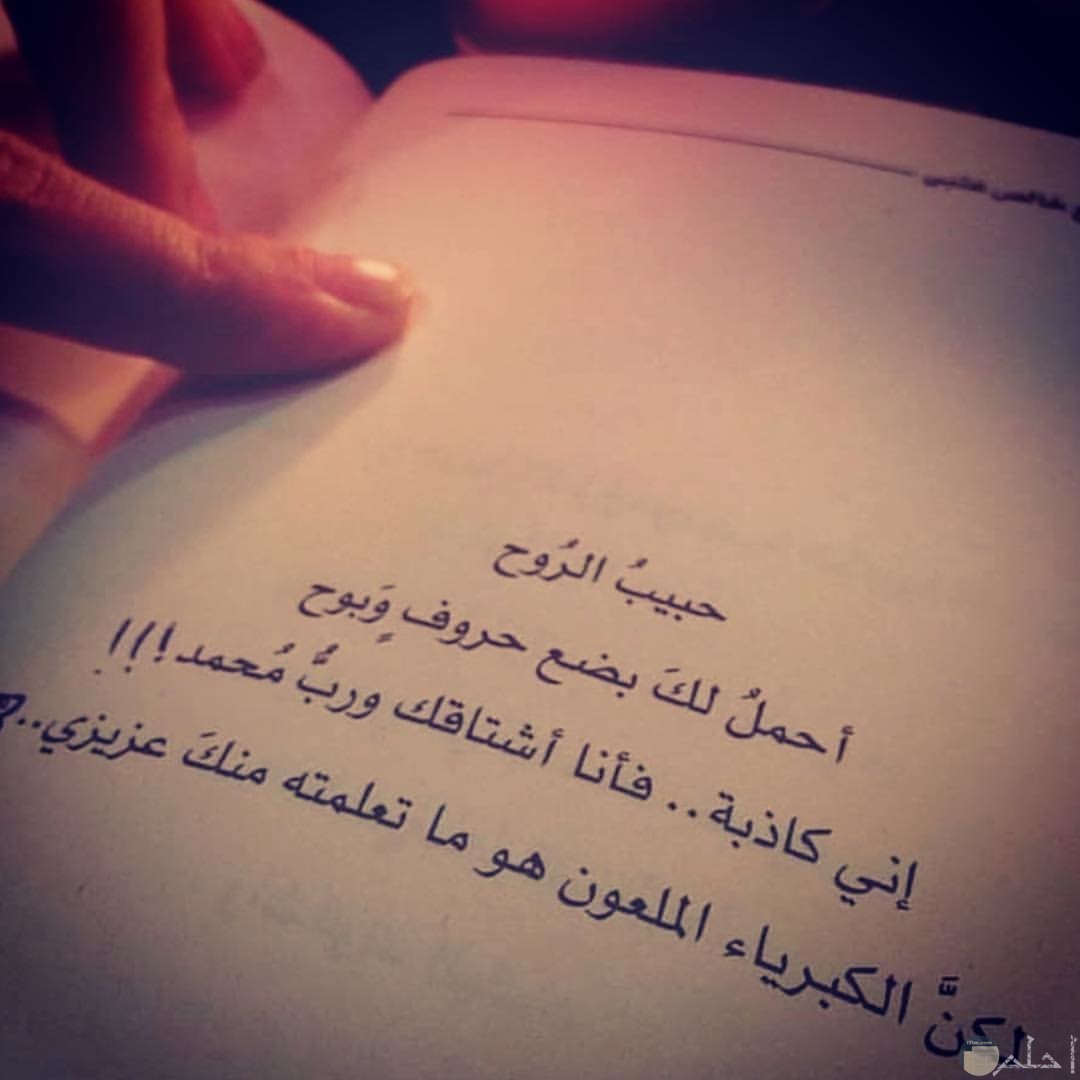 خالص قلبي
حبيبُ الرُوح
أحملُ لكَ بضع حروفٍ وَبوح
إني كاذبة.. فأنا أشتاقك وربُّ مُحمد!!!
لكنَّ الكبرياء الملعون هو ما تعلمته منكَ عزيزي..
احلم